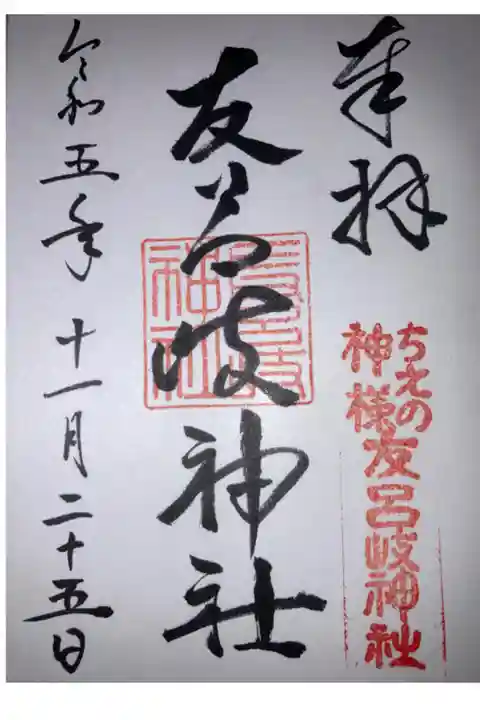 奉拝
ちえの
神様
友呂岐神社
友呂岐神社
友呂岐
神社
令和五年 十一月二十五日